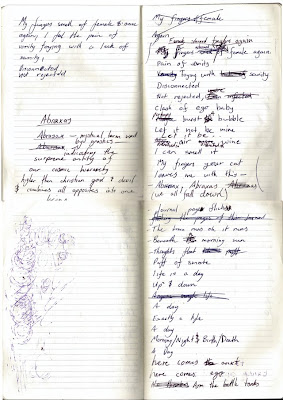 My fingers smell of female & once
again, I feel the pain of
vanity toying with a lack of
sanity,
Disconnected
not rejected
Abraxas
Abraxas — mystical term used
by gnostics —
indicating the
supreme entity of
our cosmic hierarchy
higher than christian god & devil
& combines all opposites into one
being
My fingers & female
Again
female again
Pain of vanity
Vanity toying with sanity
Disconnected
Not rejected,
Clash of ego baby
burst bubble
Let it not be mine
Let it be
wine
I can smell it
My fingers your cut
Leaves me with this —
Abraxas, Abraxas, Abraxas
(we all fall down)
Journal pages
the pages of this journal
The time runs oh it runs
Beneath morning sun
Thoughts that
Puff of smoke
Life in a day
Up & down
life
A day
Exactly a life
A day
Morning/Night & Birth/Death
A Day
here comes the
here comes ego
the battle tanks